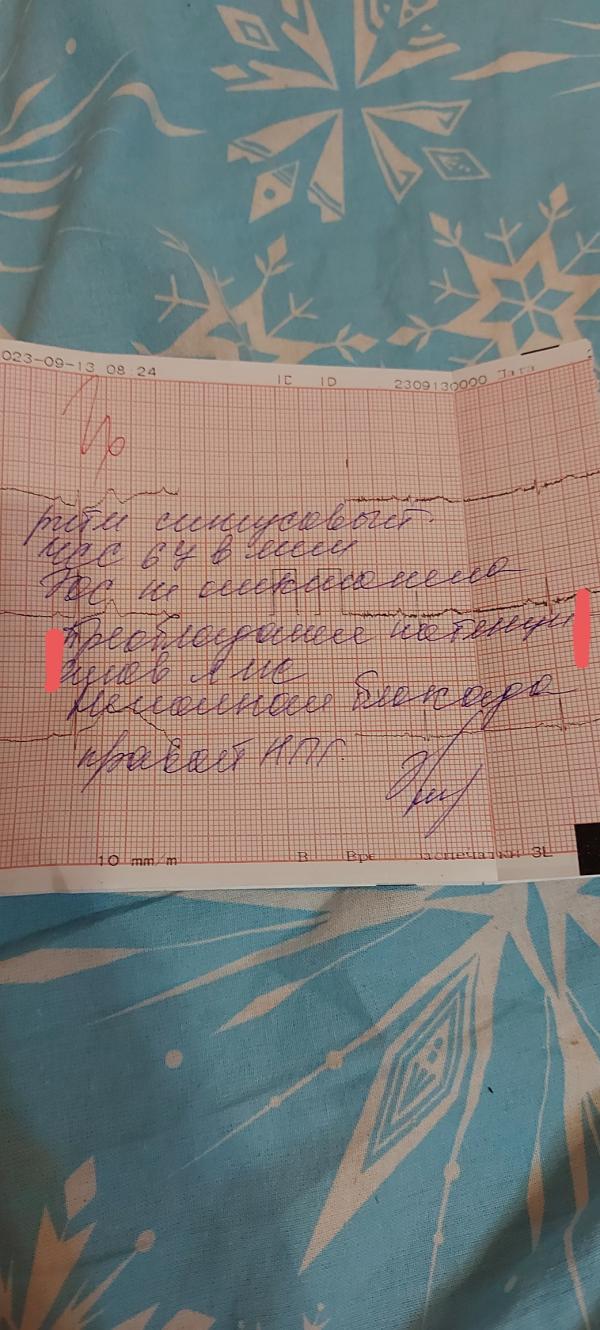 023-09-13 08:24 IC ID 2309130000 Дата
ритм синусовый
ЧСС 64 в мин
Эос не отклонена
Преобладание потенци
алов ЛЖ
Неполная блокада
правой НПГ.
10 mm/m В Вре распечатки 3L